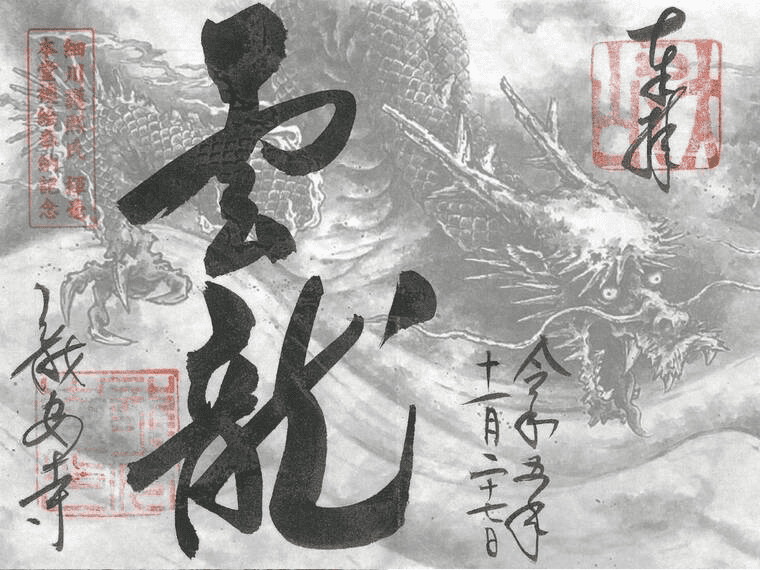 奉拝
令和五年
十一月二十七日
雲龍
細川護熙氏 揮毫
本堂襖絵奉納記念
龍安寺